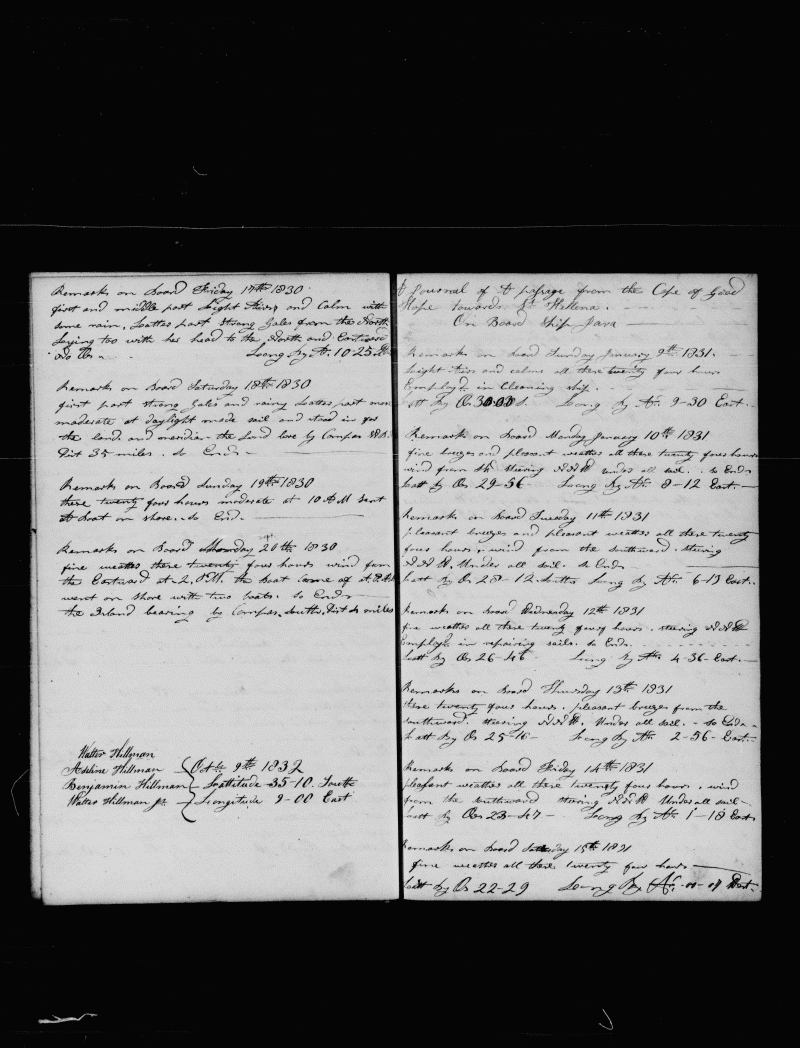 Remarks on Board Friday 17th 1830
first and middle part light Airs and Calm with
some rain, Latter part strong Gales from the North
Laying too with his head to the North and Eastward
No Obs Long By Ar. 10-25
Remarks on Board Saturday 18th 1830
first part strong Gales and rainy Latter part more
moderate at daylight made sail and stood in for
the land and meridian the Land bore by Compas
Dist 35 miles. So Ends
Remarks on Board Sunday 19th 1830
these twenty four hours moderate at 10 AM sent
A Boat on shore. So End.
Remarks on Board Monday 20th 1830
fine weather these twenty four hours wind from
the Eastward at 2, P.M. the boat Came of at
went on shore with two boats. So Ends
the Island bearing by Compas South, Dist 4 miles
Walter Hillman
Adeline Hillman
Benjamin Hillman
Walter Hillman Jr
Oct 9th 1832
Lattitude 35-10 South
Longitude 9-00 East
A Journal of A pasage from the Cope of Good
Hope towards St Hellena.
On Board Ship Java
Remarks on board Sunday January 9th 1831.
Light Airs and calms all these twenty four hours
Employd in Cleaning ship.
Latt By Obs 30-00 S. Long by Ar. 9-30 East.
Remarks on Board Monday January 10th 1831
fine breezes and pleasant weather all these twenty four hours
wind from SE steering N N W under all sail. So Ends
Latt by Os 29-56 Long By Ar. 8-12 East
Remarks on Board Tuesday 11th 1831
pleasant breezes and pleasant weather all these twenty
four hours, wind from the southward. steering
N N W. Under all sail. So Ends
Latt By Os 28-12 Souther Long By Ar. 6-13 East.
Remarks on Board Wednesday 12th 1831
fine weather all these twenty four hours. steering N N W
Employd in repairing sails. So Ends.
Latt By Obs 26-46 Long By Ar. 4-36 East.
Remarks on Board Thursday 13th 1831
these twenty four hours. pleasant breezes from the
southward. steering N N W. Under all sail. So Ends
Latt By Os 25-16 Long By Ar. 2-56 East.
Remarks on Board Friday 14th 1831
pleasant weather all these twenty four hours. wind
from the southward steering N N W Under all sail
Latt by Obs 23-47 Long By Ar. 1-18 East
Remarks on Board Saturday 15th 1831
fine weather all these twenty four hours
Latt by Os 22-29 Long By Ar. 00-07 West.